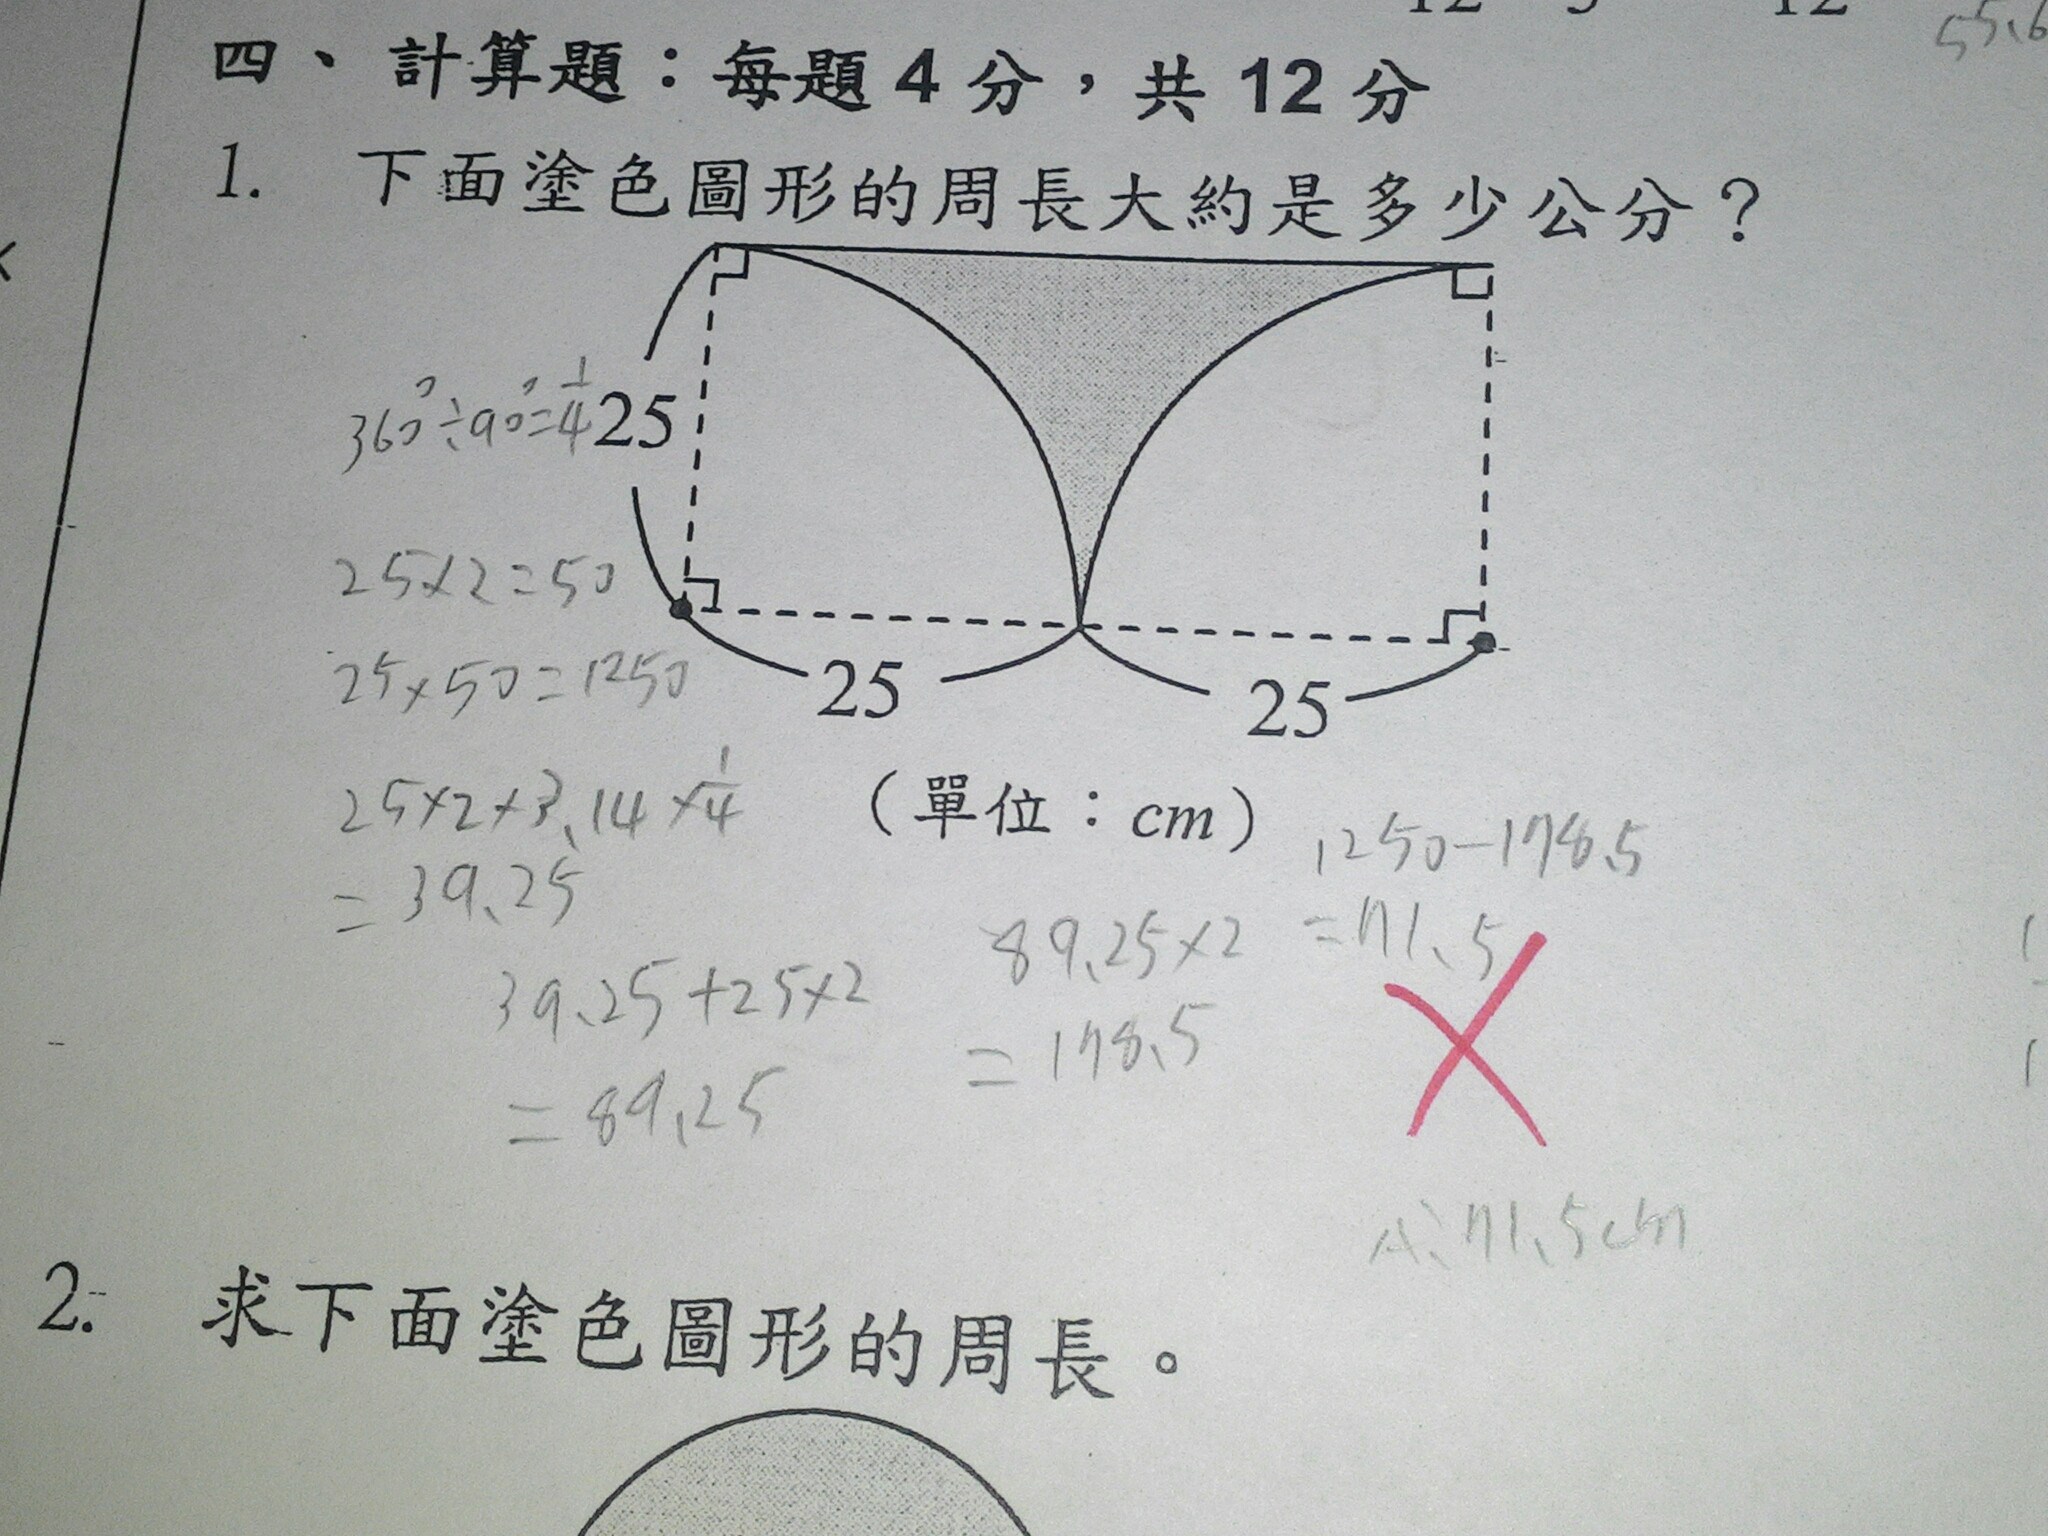 四、計算題：每題4分，共12分
1. 下面塗色圖形的周長大約是多少公分？
360°÷90°=1/4
25
25×2=50
25×50=1250
25
25
25×2×3.14×1/4
（單位：cm）
=39.25
1250-178.5
=71.5
39.25+25×2
=89.25
89.25×2
=178.5
A:71.5cm
2. 求下面塗色圖形的周長。